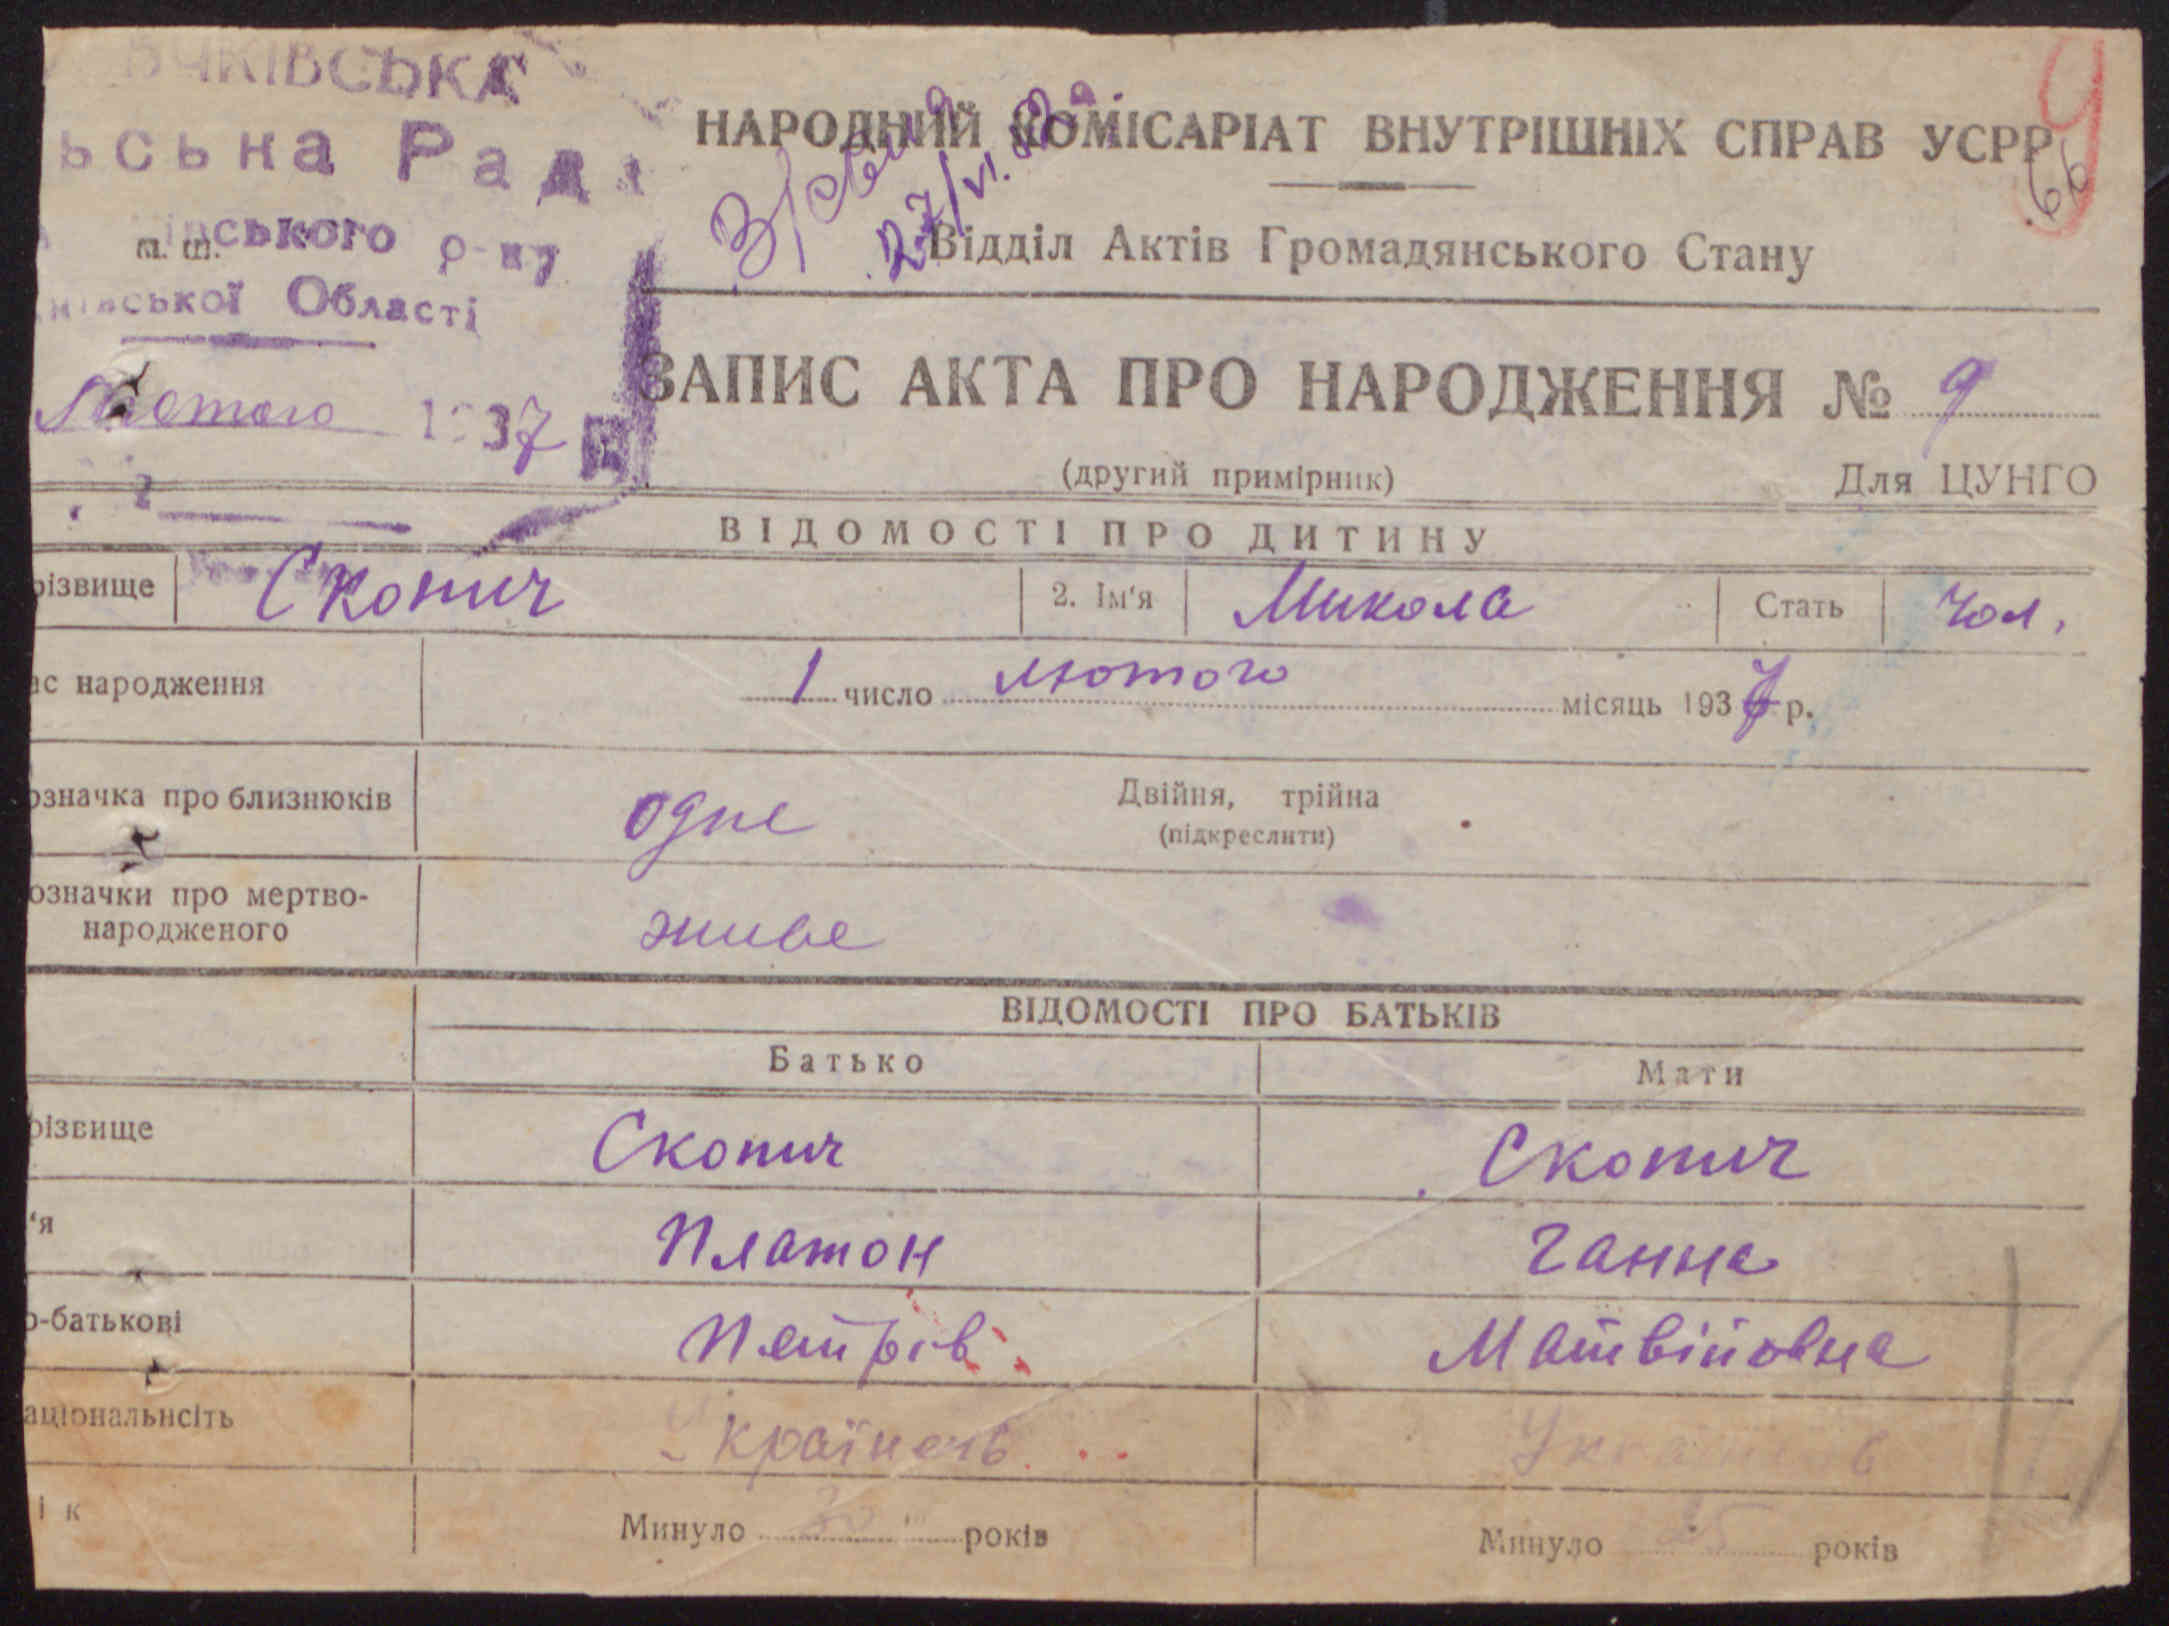 ЧКІВСЬКА
ьсьна Рада
ського р-ну
ської Області
Лютого 1937
НАРОДНИЙ КОМІСАРІАТ ВНУТРІШНІХ СПРАВ УСРР
66
9
27/VI.
Відділ Актів Громадянського Стану
ЗАПИС АКТА ПРО НАРОДЖЕННЯ № 9
(другий примірник) Для ЦУНГО
ВІДОМОСТІ ПРО ДИТИНУ
різвище Скопич 2. Ім'я Микола Стать Чол.
ас народження 1 число лютого місяць 1937 р.
означка про близнюків одне Двійня, трійна
(підкреслити)
означки про мертво-
народженого живе
ВІДОМОСТІ ПРО БАТЬКІВ
Батько Мати
різвище Скопич Скопич
'я Платон Ганна
о-батькові Петрів Матвійовна
аціональнсіть Українець
ік Минуло 30 років Минуло 25 років